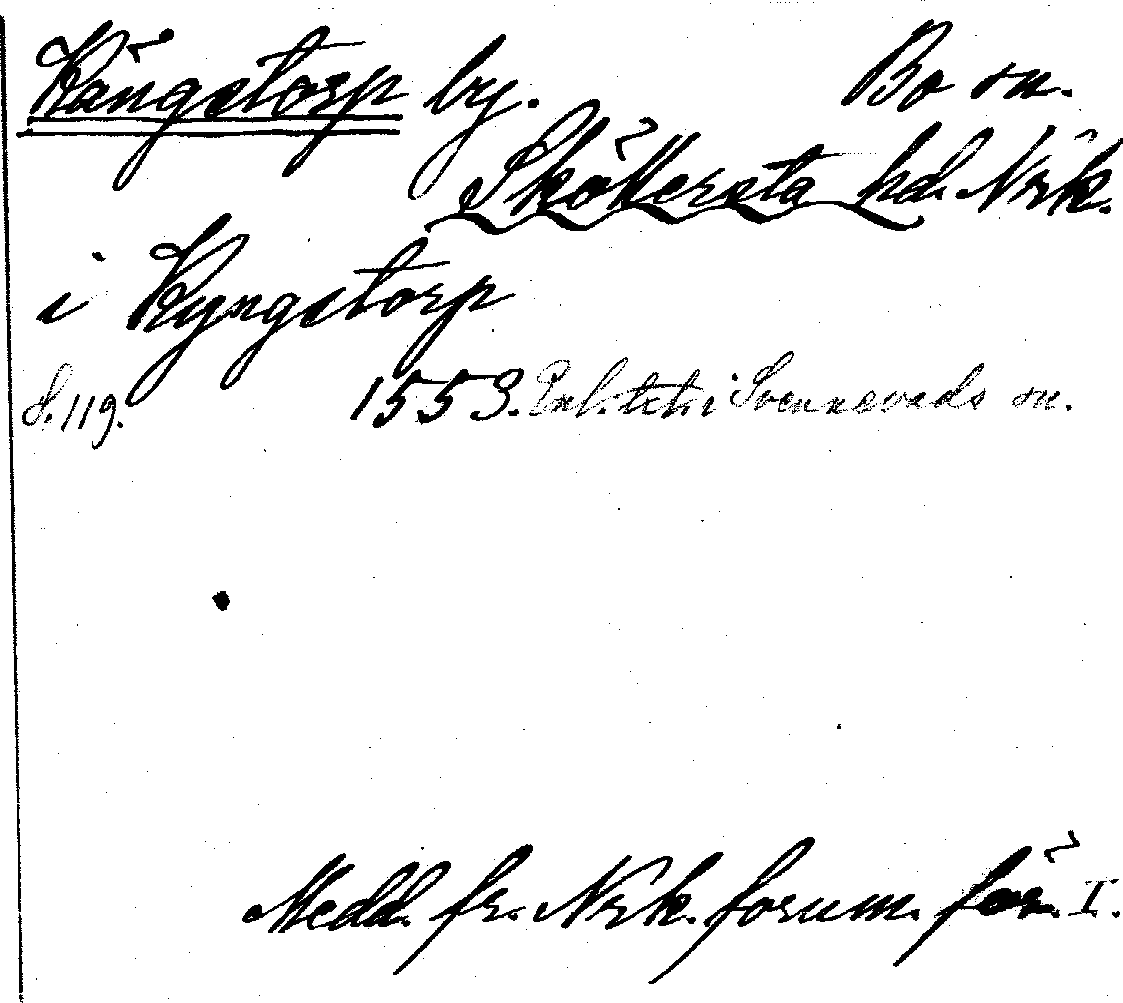 Kängstorp by. Bo sn.
Sköllersta hd. Nrk.
i Kyngstorp
S. 119. 1553. Enl. texten i Svennevads sn.
Medd. fr. Nrk. fornm. för. I.